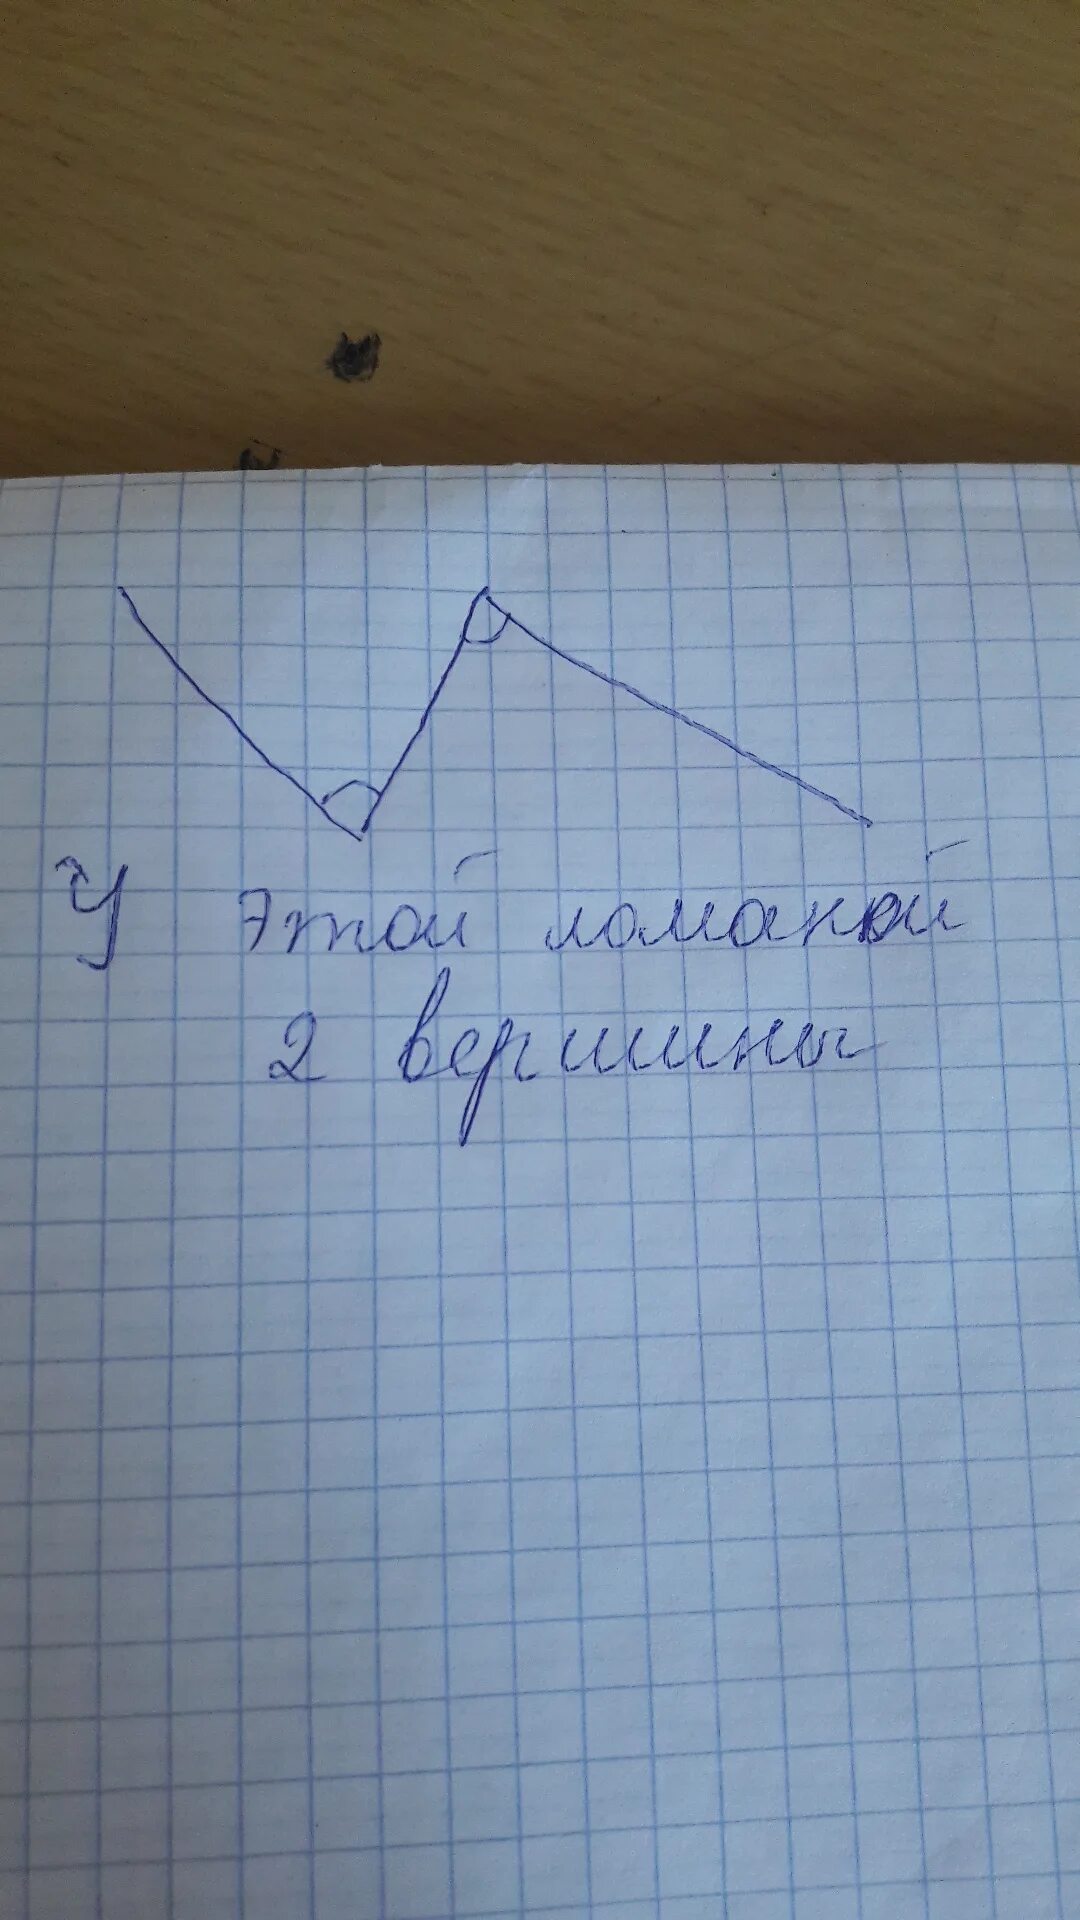 У этой ломаной
2 вершины